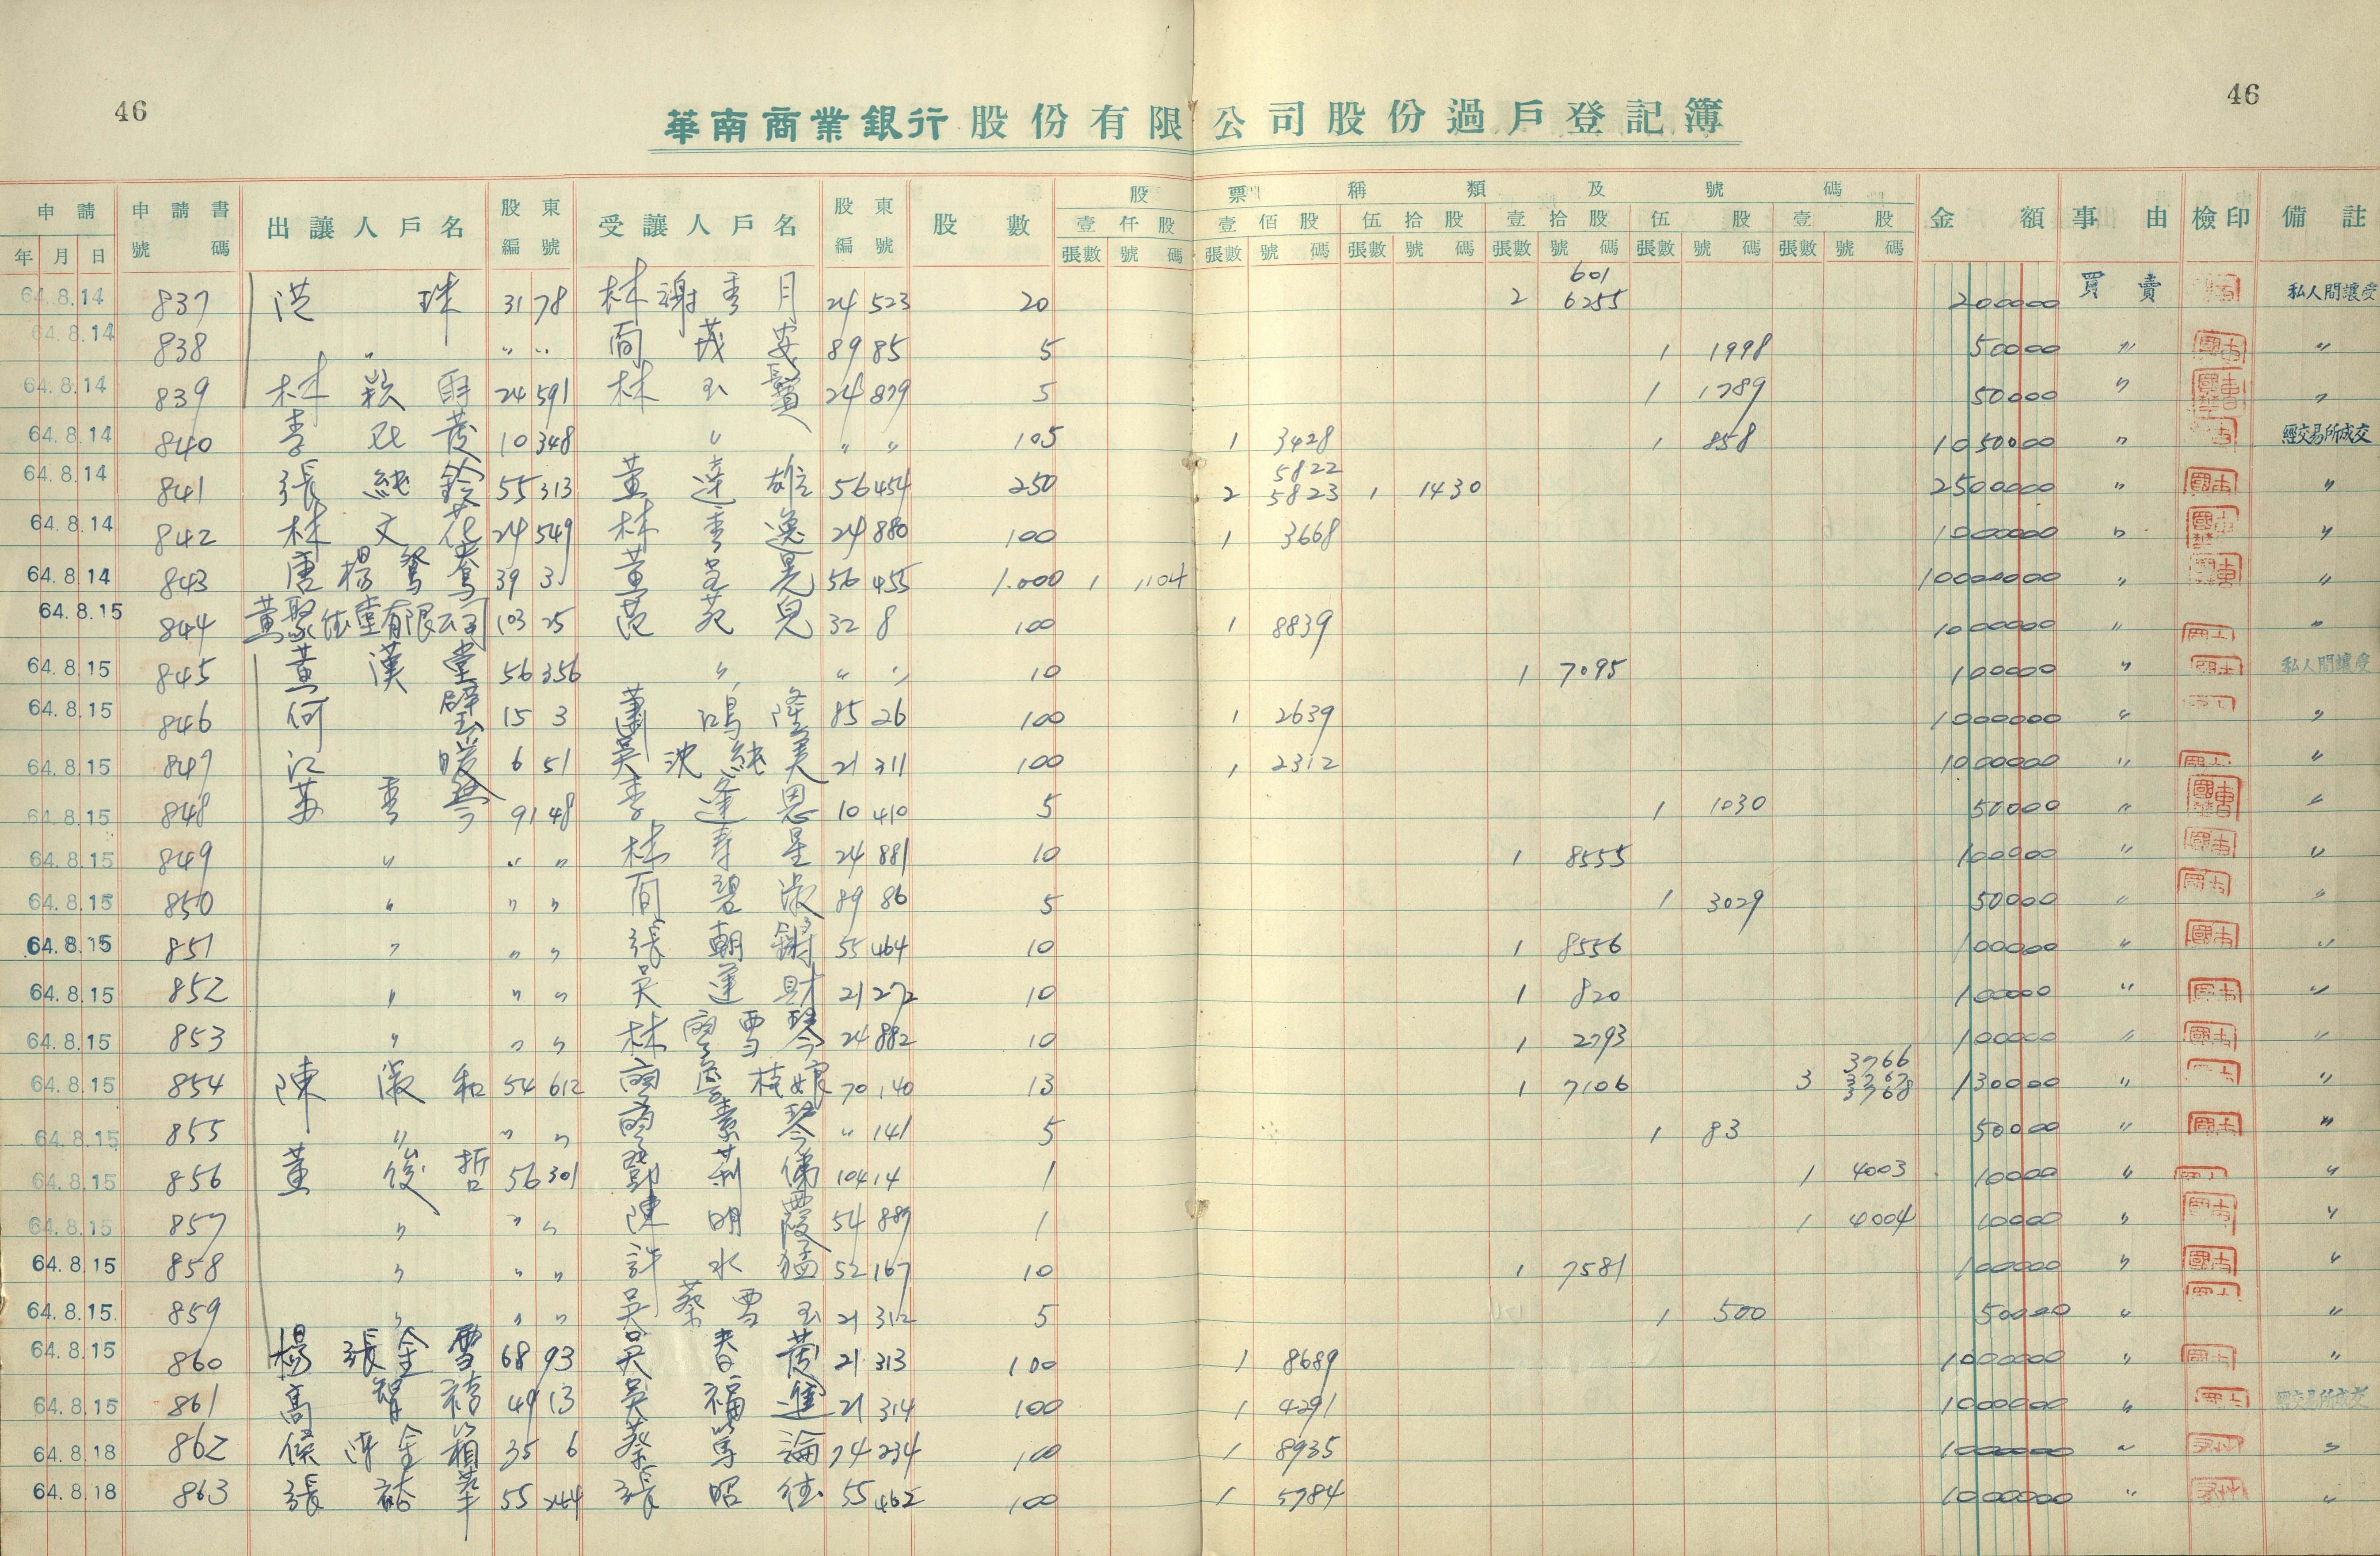 46 46
華南商業銀行股份有限公司股份過戶登記簿
申請 申請書 出讓人戶名 股東 受讓人戶名 股東 股數 股票種類及號碼 金額 事由 檢印 備註
年 月 日 號碼 編號 編號 壹仟股 壹佰股 伍拾股 壹拾股 伍股 壹股
張數 號碼 張數 號碼 張數 號碼 張數 號碼 張數 號碼 張數 號碼
601
64.8.14 837 洪 珠 31 78 林謝秀月 24 523 20 2 6255 200000 買賣 私人間讓受
64.8.14 838 〃 〃 〃 茂安 89 85 5 1 1998 50000 〃 〃
64.8.14 839 林穎 24 591 林玉鬢 24 879 5 1 1789 50000 〃 〃
64.8.14 840 李 24 10 348 〃 〃 〃 105 1 3428 1 858 1050000 〃 經交易所成交
5822
64.8.14 841 張純鈴 55 313 黃達雄 56 454 250 2 5823 1 1430 2500000 〃 〃
64.8.14 842 林文花 24 549 林秀逸 24 880 100 1 3668 1000000 〃 〃
64.8.14 843 唐楊鴛鴦 39 3 黃 晃 56 455 1.000 1 1104 10000000 〃 〃
64.8.15 844 黃聚 堂有限公司 103 25 范苑兒 32 8 100 1 8839 1000000 〃 〃
64.8.15 845 黃漢堂 56 356 〃 〃 〃 10 1 7095 100000 〃 私人間讓受
64.8.15 846 何璧 15 3 蕭鳴隆 85 26 100 1 2639 1000000 〃 〃
64.8.15 847 江暖 6 51 吳沈純美 21 311 100 1 2312 1000000 〃 〃
64.8.15 848 蘇秀琴 91 48 李逢恩 10 410 5 1 1030 50000 〃 〃
64.8.15 849 〃 〃 〃 林寿星 24 881 10 1 8555 100000 〃 〃
64.8.15 850 〃 〃 〃 碧淑 89 86 5 1 3029 50000 〃 〃
64.8.15 851 〃 〃 〃 張朝鏘 55 464 10 1 8556 100000 〃 〃
64.8.15 852 〃 〃 〃 吳運財 21 272 10 1 820 100000 〃 〃
64.8.15 853 〃 〃 〃 林廖雪琴 24 882 10 1 2793 100000 〃 〃
3766
3767
64.8.15 854 陳淑和 54 612 廖 桂娘 70 140 13 1 7106 3 3768 130000 〃 〃
64.8.15 855 〃 〃 〃 廖素琴 〃 141 5 1 83 50000 〃 〃
64.8.15 856 董俊哲 56 301 鄧 104 14 1 1 4003 10000 〃 〃
64.8.15 857 〃 〃 〃 陳明霞 54 889 1 1 4004 10000 〃 〃
64.8.15 858 〃 〃 〃 許水猛 52 167 10 1 7581 100000 〃 〃
64.8.15 859 〃 〃 〃 吳蔡雪玉 21 312 5 1 500 50000 〃 〃
64.8.15 860 楊張金雪 68 93 吳春茂 21 313 100 1 8689 1000000 〃 〃
64.8.15 861 高智禧 49 13 吳福進 21 314 100 1 4291 1000000 〃 經交易所成交
64.8.18 862 侯陳金箱 35 6 蔡篤論 74 234 100 1 8935 1000000 〃 〃
64.8.18 863 張 華 55 244 張昭 55 462 100 1 5784 1000000 〃 〃